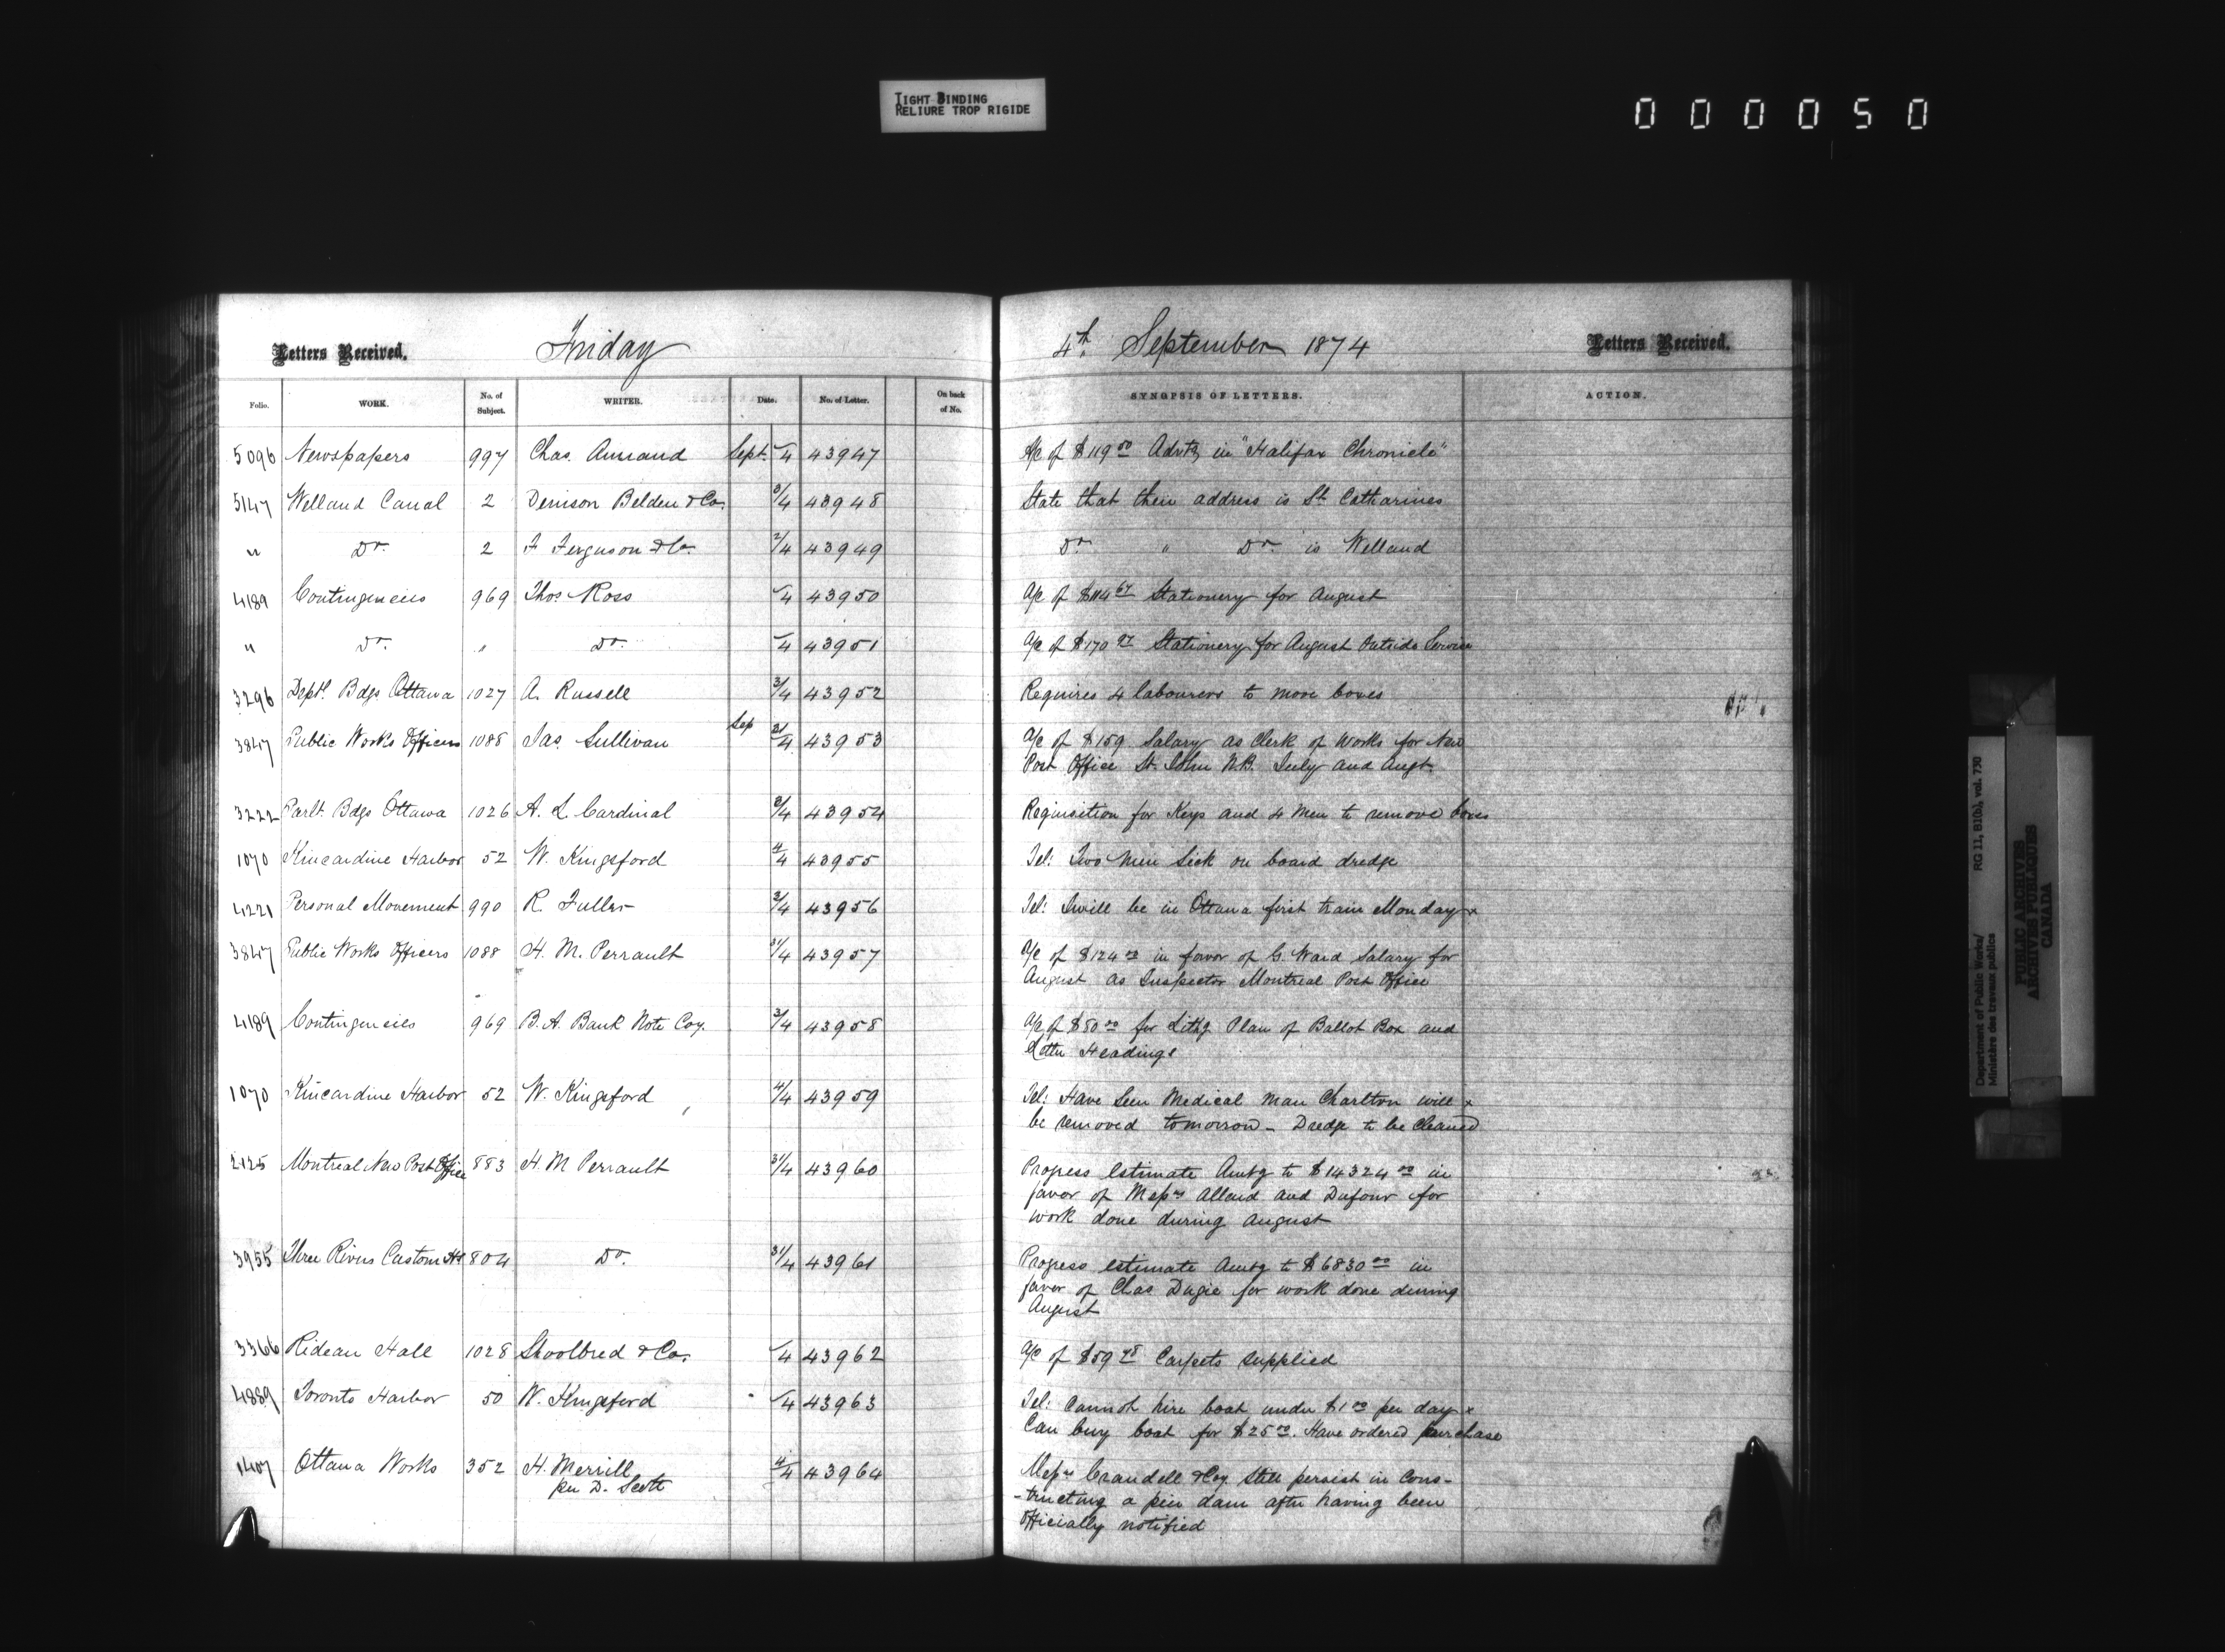 TIGHT BINDING
RELIURE TROP RIGIDE
000050
Letters Received. Friday 4th September 1874 Letters Received.
Folio. WORK. No. of Subject. WRITER. Date. No. of Letter. On back of No. SYNOPSIS OF LETTERS. ACTION.
5096 Newspapers 997 Chas. Annand Sept. /4 43947 A/c of $119 50 Advtg in "Halifax Chronicle"
5147 Welland Canal 2 Denison Belden & Co. 3/4 43948 State that their address is St. Catharines
" Do. 2 F Ferguson & Co. 2/4 43949 Do. " Do. is Welland
4189 Contingencies 969 Thos. Ross /4 43950 A/c of $114 67 Stationery for August
" Do. " Do. /4 43951 A/c of $170 97 Stationery for August Outside Service
3296 Deptl. Bdgs Ottawa 1027 A. Russell 3/4 43952 Requires 4 labourers to move boxes
3847 Public Works Officers 1088 Jas. Sullivan Sep 31/4 43953 A/c of $159. Salary as Clerk of Works for New
Post Office St. John N.B. July and Augt.
3222 Parlt. Bdgs Ottawa 1026 A. L. Cardinal 3/4 43954 Requisition for Keys and 4 Men to remove boxes
1070 Kincardine Harbor 52 W. Kingsford 4/4 43955 Tel: Two Men Sick on board dredge
4221 Personal Movement 990 R. Fuller 3/4 43956 Tel: I will be in Ottawa first train Monday x
3847 Public Works Officers 1088 H. M. Perrault 31/4 43957 A/c of $124 00 in favor of G. Ward Salary for
August as Inspector Montreal Post Office
4189 Contingencies 969 B. A. Bank Note Coy. 3/4 43958 A/c of $50 00 for Lithg Plan of Ballot Box and
Letter Headings
1070 Kincardine Harbor 52 W. Kingsford 4/4 43959 Tel: Have Seen Medical Man Charlton will x
be removed tomorrow - Dredge to be Cleaned
2125 Montreal New Post Office 883 H. M Perrault 31/4 43960 Progress Estimate Amtg to $14324 00 in
favor of Messrs Allard and Dufour for
work done during August
3955 Three Rivers Custom Hs 804 Do. 31/4 43961 Progress estimate Amtg to $6830 00 in
favor of Chas Dugie for work done during
August
3366 Rideau Hall 1028 Shoolbred & Co. /4 43962 A/c of $59 Carpets supplied
4889 Toronto Harbor 50 W. Kingsford /4 43963 Tel: Cannot hire boat under $1 00 per day x
Can buy boat for $25 00. Have ordered purchase
1407 Ottawa Works 352 H. Merrill 4/4 43964 Messrs Crandell & Coy. Still persist in Cons-
per D. Scott -tructing a pier dam after having been
officially notified
Department of Public Works/ RG 11, B1(b), vol. 730
Ministère des travaux publics
PUBLIC ARCHIVES
ARCHIVES PUBLIQUES
CANADA